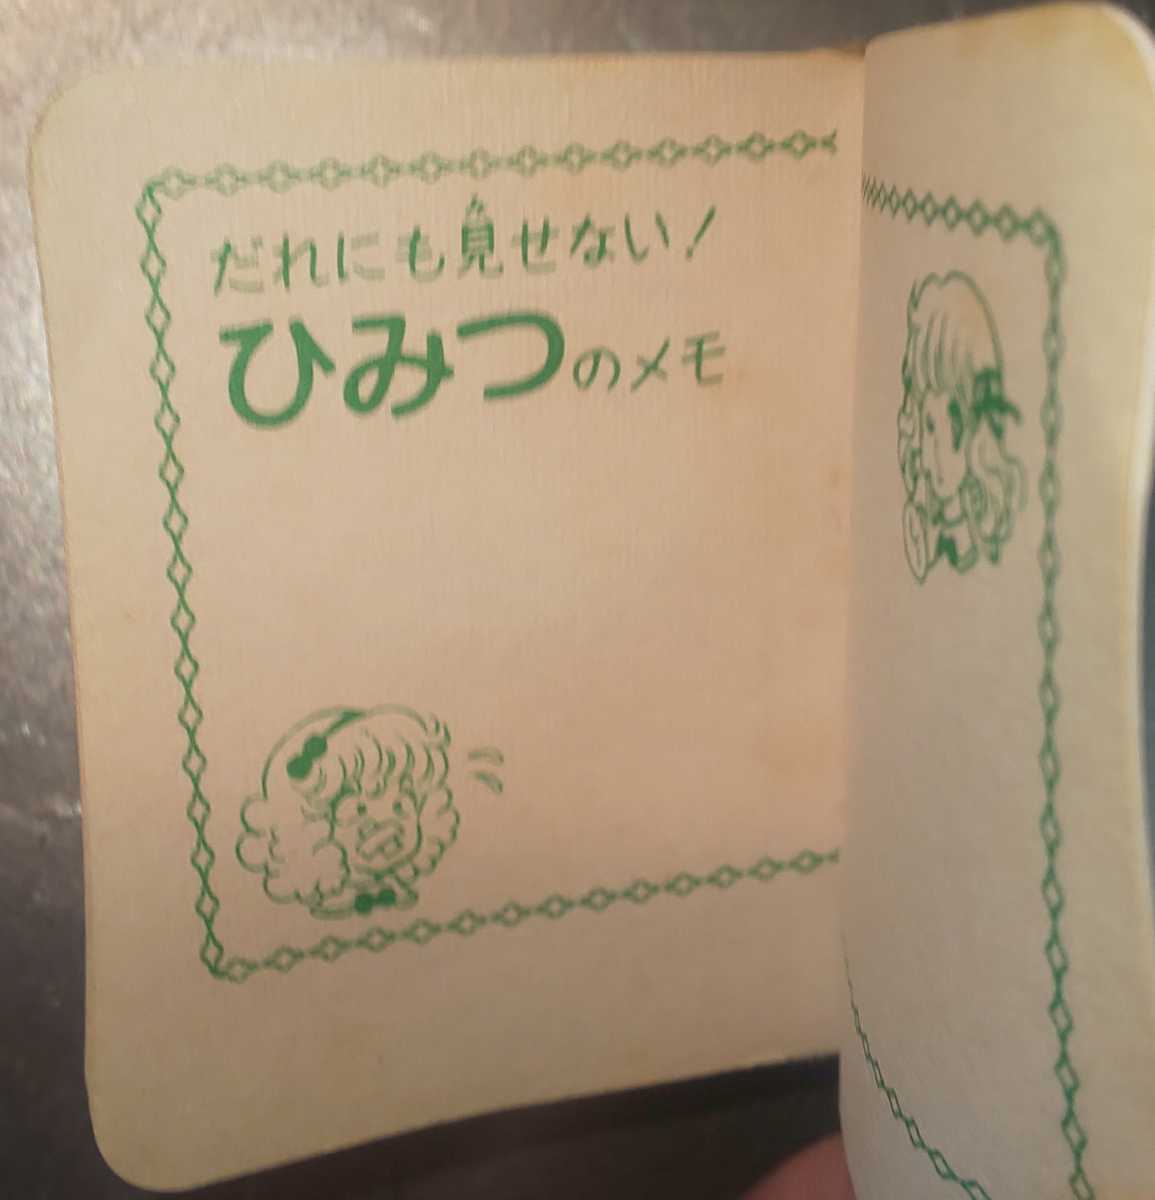 だれにも見せない!
ひみつのメモ